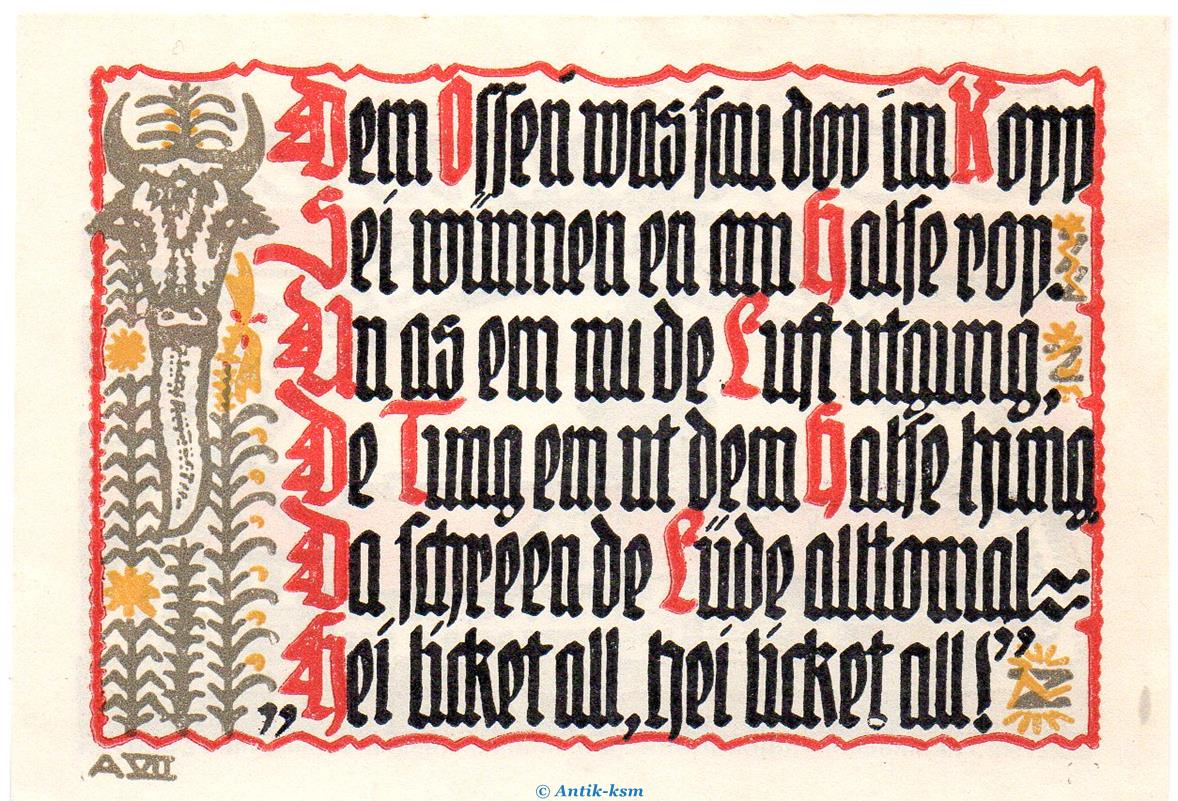 Dem Ossen was sau dov im Kopp
Sei wünnen en am Halse rop.
Un as em nu de Luft utgung,
De Tung em ut dem Halse hung
Da schreen de Lüde alltomal
„Hei licket all, hei licket all!”
A VII
© Antik-ksm